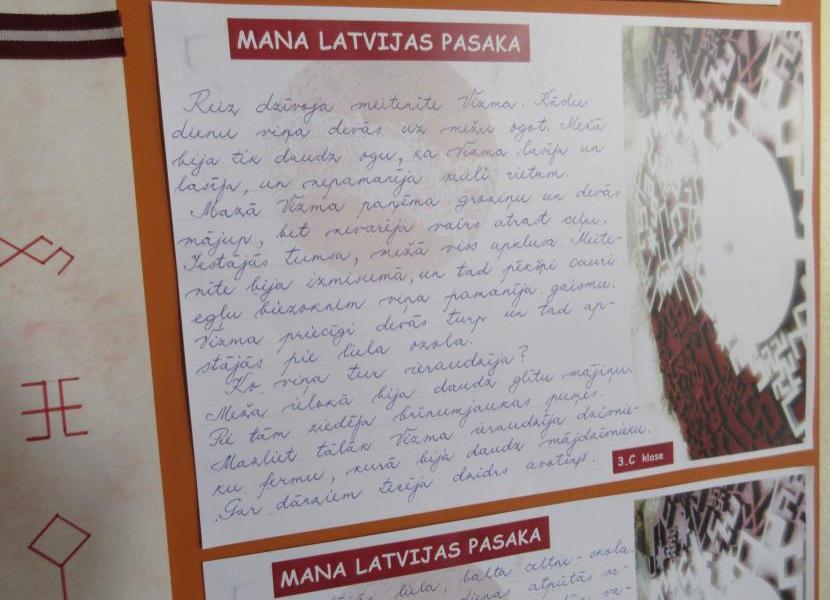 MANA LATVIJAS PASAKA
Reiz dzīvoja meitenīte Vizma. Kādu
dienu viņa devās uz mežu ogot. Mežā
bija tik daudz ogu, ka Vizma lasīja un
lasīja, un nepamanīja sauli rietam.
Mazā Vizma paņēma groziņu un devās
mājup, bet nevarēja vairs atrast ceļu.
Iestājās tumsa, mežā viss apklusa. Meite-
nīte bija izmisumā, un tad pēkšņi cauri
egļu biezoknim viņa pamanīja gaismu.
Vizma priecīgi devās turp un tad ap-
stājās pie liela ozola.
Ko viņa tur ieraudzīja?
Meža ielokā bija daudz glītu mājiņu.
Pie tām ziedēja brīnumjaukas puķes.
Mazliet tālāk Vizma ieraudzīja dzīvnie-
ku fermu, kurā bija daudz mājdzīvnieku.
Gar dārziem tecēja dzidrs avotiņš.
3.C klase
MANA LATVIJAS PASAKA
liela, balta celtne - skola.
atpūtās